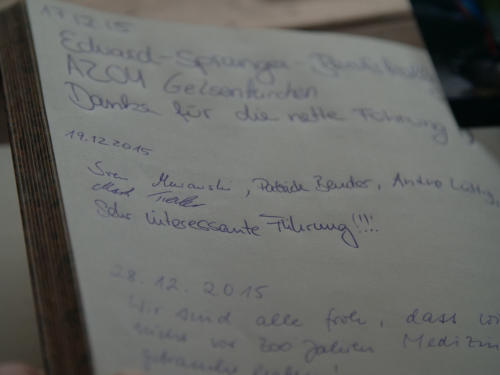 17.12.15
Eduard-Spranger-Berufskolleg
AZOM Gelsenkirchen
Danke für die nette Führung
19.12.2015
Sven , Patrick Bender, Andre
Sehr interessante Führung!!!!
28.12.2015
Wir sind alle froh, dass wir
nicht vor 200 Jahren Medizin